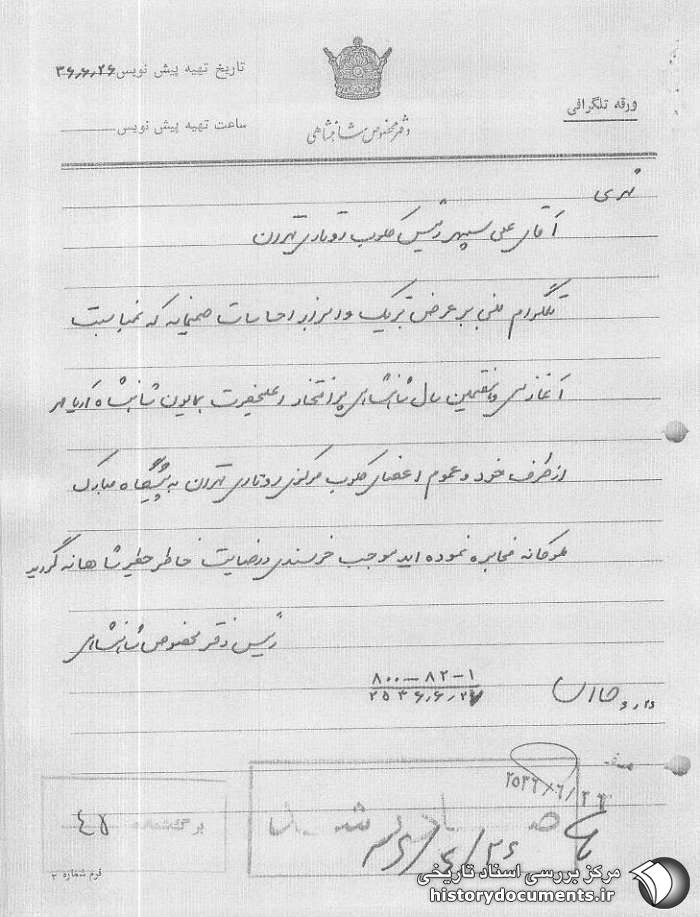 تاریخ تهیه پیش نویس ۳۶٫۶٫۲۶
ورقه تلگرافی
ساعت تهیه پیش نویس
دفتر مخصوص شاهنشاهی
آقای علی سپهر رئیس کلوب روتاری تهران
تلگرام مبنی بر عرض تبریک و ابراز احساسات صمیمانه که بمناسبت
آغاز سی و هفتمین سال شاهنشاهی پر افتخار اعلیحضرت همایون شاهنشاه آریامهر
از طرف خود و عموم اعضای کلوب مرکزی روتاری تهران به پیشگاه مبارک
ملوکانه مخابره نموده اید موجب خرسندی و رضایت خاطر خطیر شاهانه گردید
رئیس دفتر مخصوص شاهنشاهی
۸۰۰-۸۲-۱
۲۵۳۶٫۶٫۲۷
۲۵۳۶/۶/۲۶
برگشماره ۴۵
فرم شماره ۲
مرکز بررسی اسناد تاریخی
historydocuments.ir